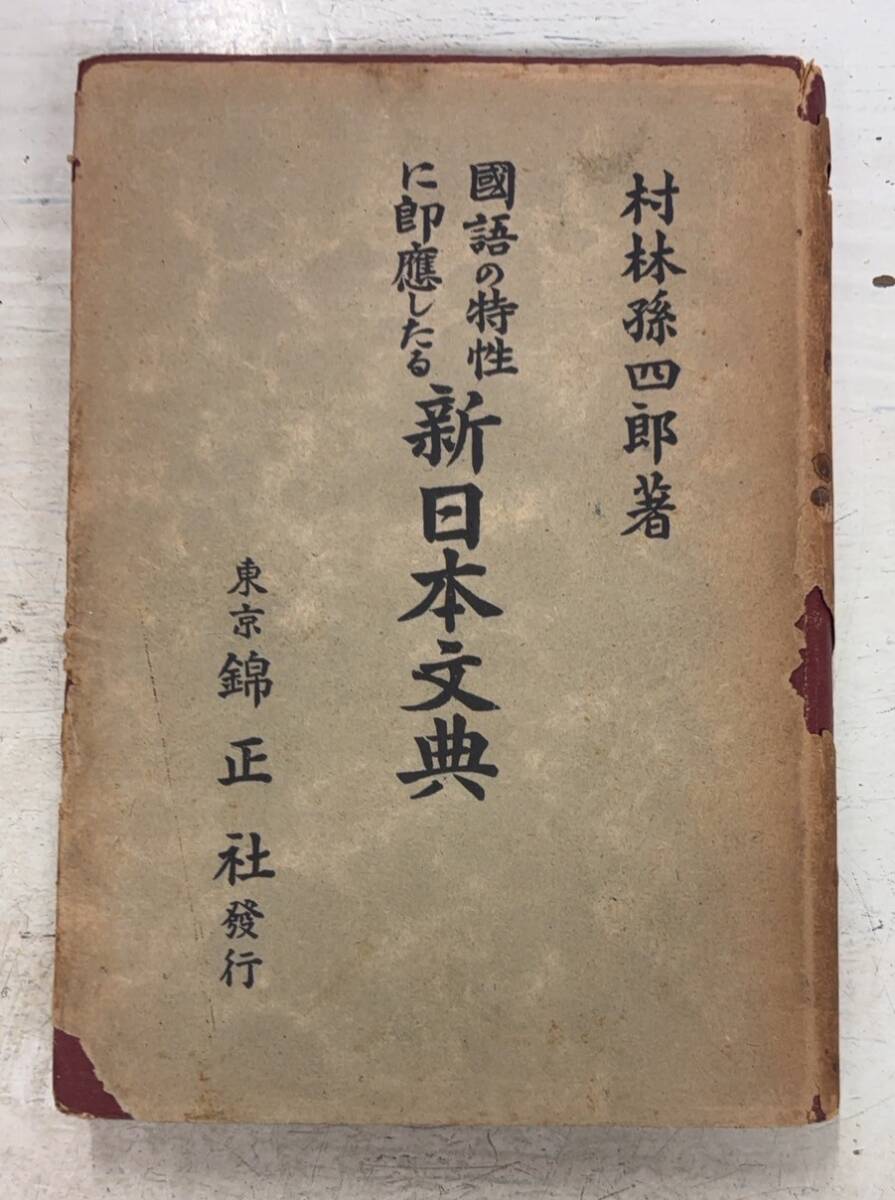 村林孫四郎著
國語の特性
に即應したる
新日本文典
東京 錦正社發行